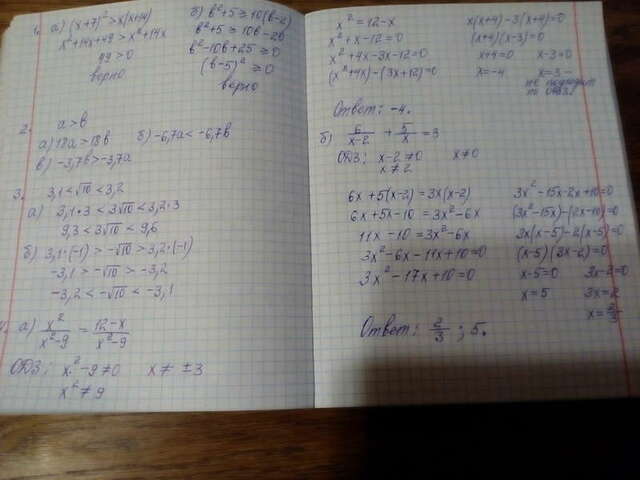 1. а) (x+7)² > x(x+14)
x²+14x+49 > x²+14x
49 > 0
верно
б) b²+5 ≥ 10(b-2)
b²+5 ≥ 10b-20
b²-10b+25 ≥ 0
(b-5)² ≥ 0
верно
2. a > b
а) 18a > 18b б) -6,7a < -6,7b
в) -3,7b > -3,7a
3. 3,1 < √10 < 3,2
а) 3,1·3 < 3√10 < 3,2·3
9,3 < 3√10 < 9,6
б) 3,1·(-1) > -√10 > 3,2·(-1)
-3,1 > -√10 > -3,2
-3,2 < -√10 < -3,1
а) x²/(x²-9) = (12-x)/(x²-9)
ОДЗ: x²-9 ≠ 0 x ≠ ±3
x² ≠ 9
x² = 12-x
x²+x-12=0
x²+4x-3x-12=0
(x²+4x)-(3x+12)=0
x(x+4)-3(x+4)=0
(x+4)(x-3)=0
x+4=0 x-3=0
x=-4 x=3 –
не подходит
по ОДЗ.
Ответ: -4.
б) 6/(x-2) + 5/x = 3
ОДЗ: x-2 ≠ 0 x ≠ 0
x ≠ 2
6x+5(x-2) = 3x(x-2)
6x+5x-10 = 3x²-6x
11x-10 = 3x²-6x
3x²-6x-11x+10=0
3x²-17x+10=0
3x²-15x-2x+10=0
(3x²-15x)-(2x-10)=0
3x(x-5)-2(x-5)=0
(x-5)(3x-2)=0
x-5=0 3x-2=0
x=5 3x=2
x=2/3
Ответ: 2/3; 5.